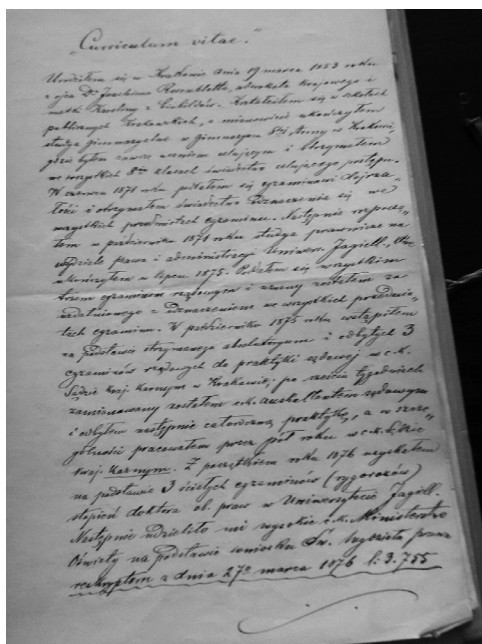 „Curriculum vitae."
Urodziłem się w Krakowie dnia 19 marca 1853 roku
z ojca Dra Joachima Rosenblatta, adwokata krajowego i
matki Karoliny z. Kształciłem się w szkołach
publicznych krakowskich, a mianowicie ukończyłem
studya gimnazyalne w gimnazyum Stej Anny w Krakowie,
gdzie byłem zawsze uczniem celującym i otrzymałem
we wszystkich 8miu klasach świadectwo celującego postępu.
W czerwcu 1871 roku poddałem się egzaminowi dojrza-
łości i otrzymałem świadectwo odznaczenia się we
wszystkich przedmiotach egzaminu. Następnie rozpoczą-
łem w październiku 1871 roku studya prawnicze na
wydziale prawa i administracyi Uniwer. Jagiell., które
ukończyłem w lipcu 1875. Poddałem się wszystkim
trzem egzaminom rządowym i uznany zostałem za
uzdolnionego z odznaczeniem we wszystkich przedmio-
tach egzaminu. W październiku 1875 roku wstąpiłem
na podstawie otrzymanego absolutoryum i odbytych 3
egzaminów rządowych do praktyki sądowej w c.k.
Sądzie kraj. karnym w Krakowie; po sześciu tygodniach
zamianowany zostałem c.k. auskultantem sądowym
i odbyłem następnie całoroczną praktykę, a w szcze-
gólności pracowałem przez pół roku w c.k. Sądzie
kraj. karnym. Z początkiem roku 1876 uzyskałem
na podstawie 3 ścisłych egzaminów (rygorozów)
stopień doktora ob. praw w Uniwersytecie Jagiell.
Następnie udzieliło mi wysokie c.k. Ministerstwo
Oświaty na podstawie wniosku Św. wydziału prawa
reskryptem z dnia 27go marca 1876 l: 3.755